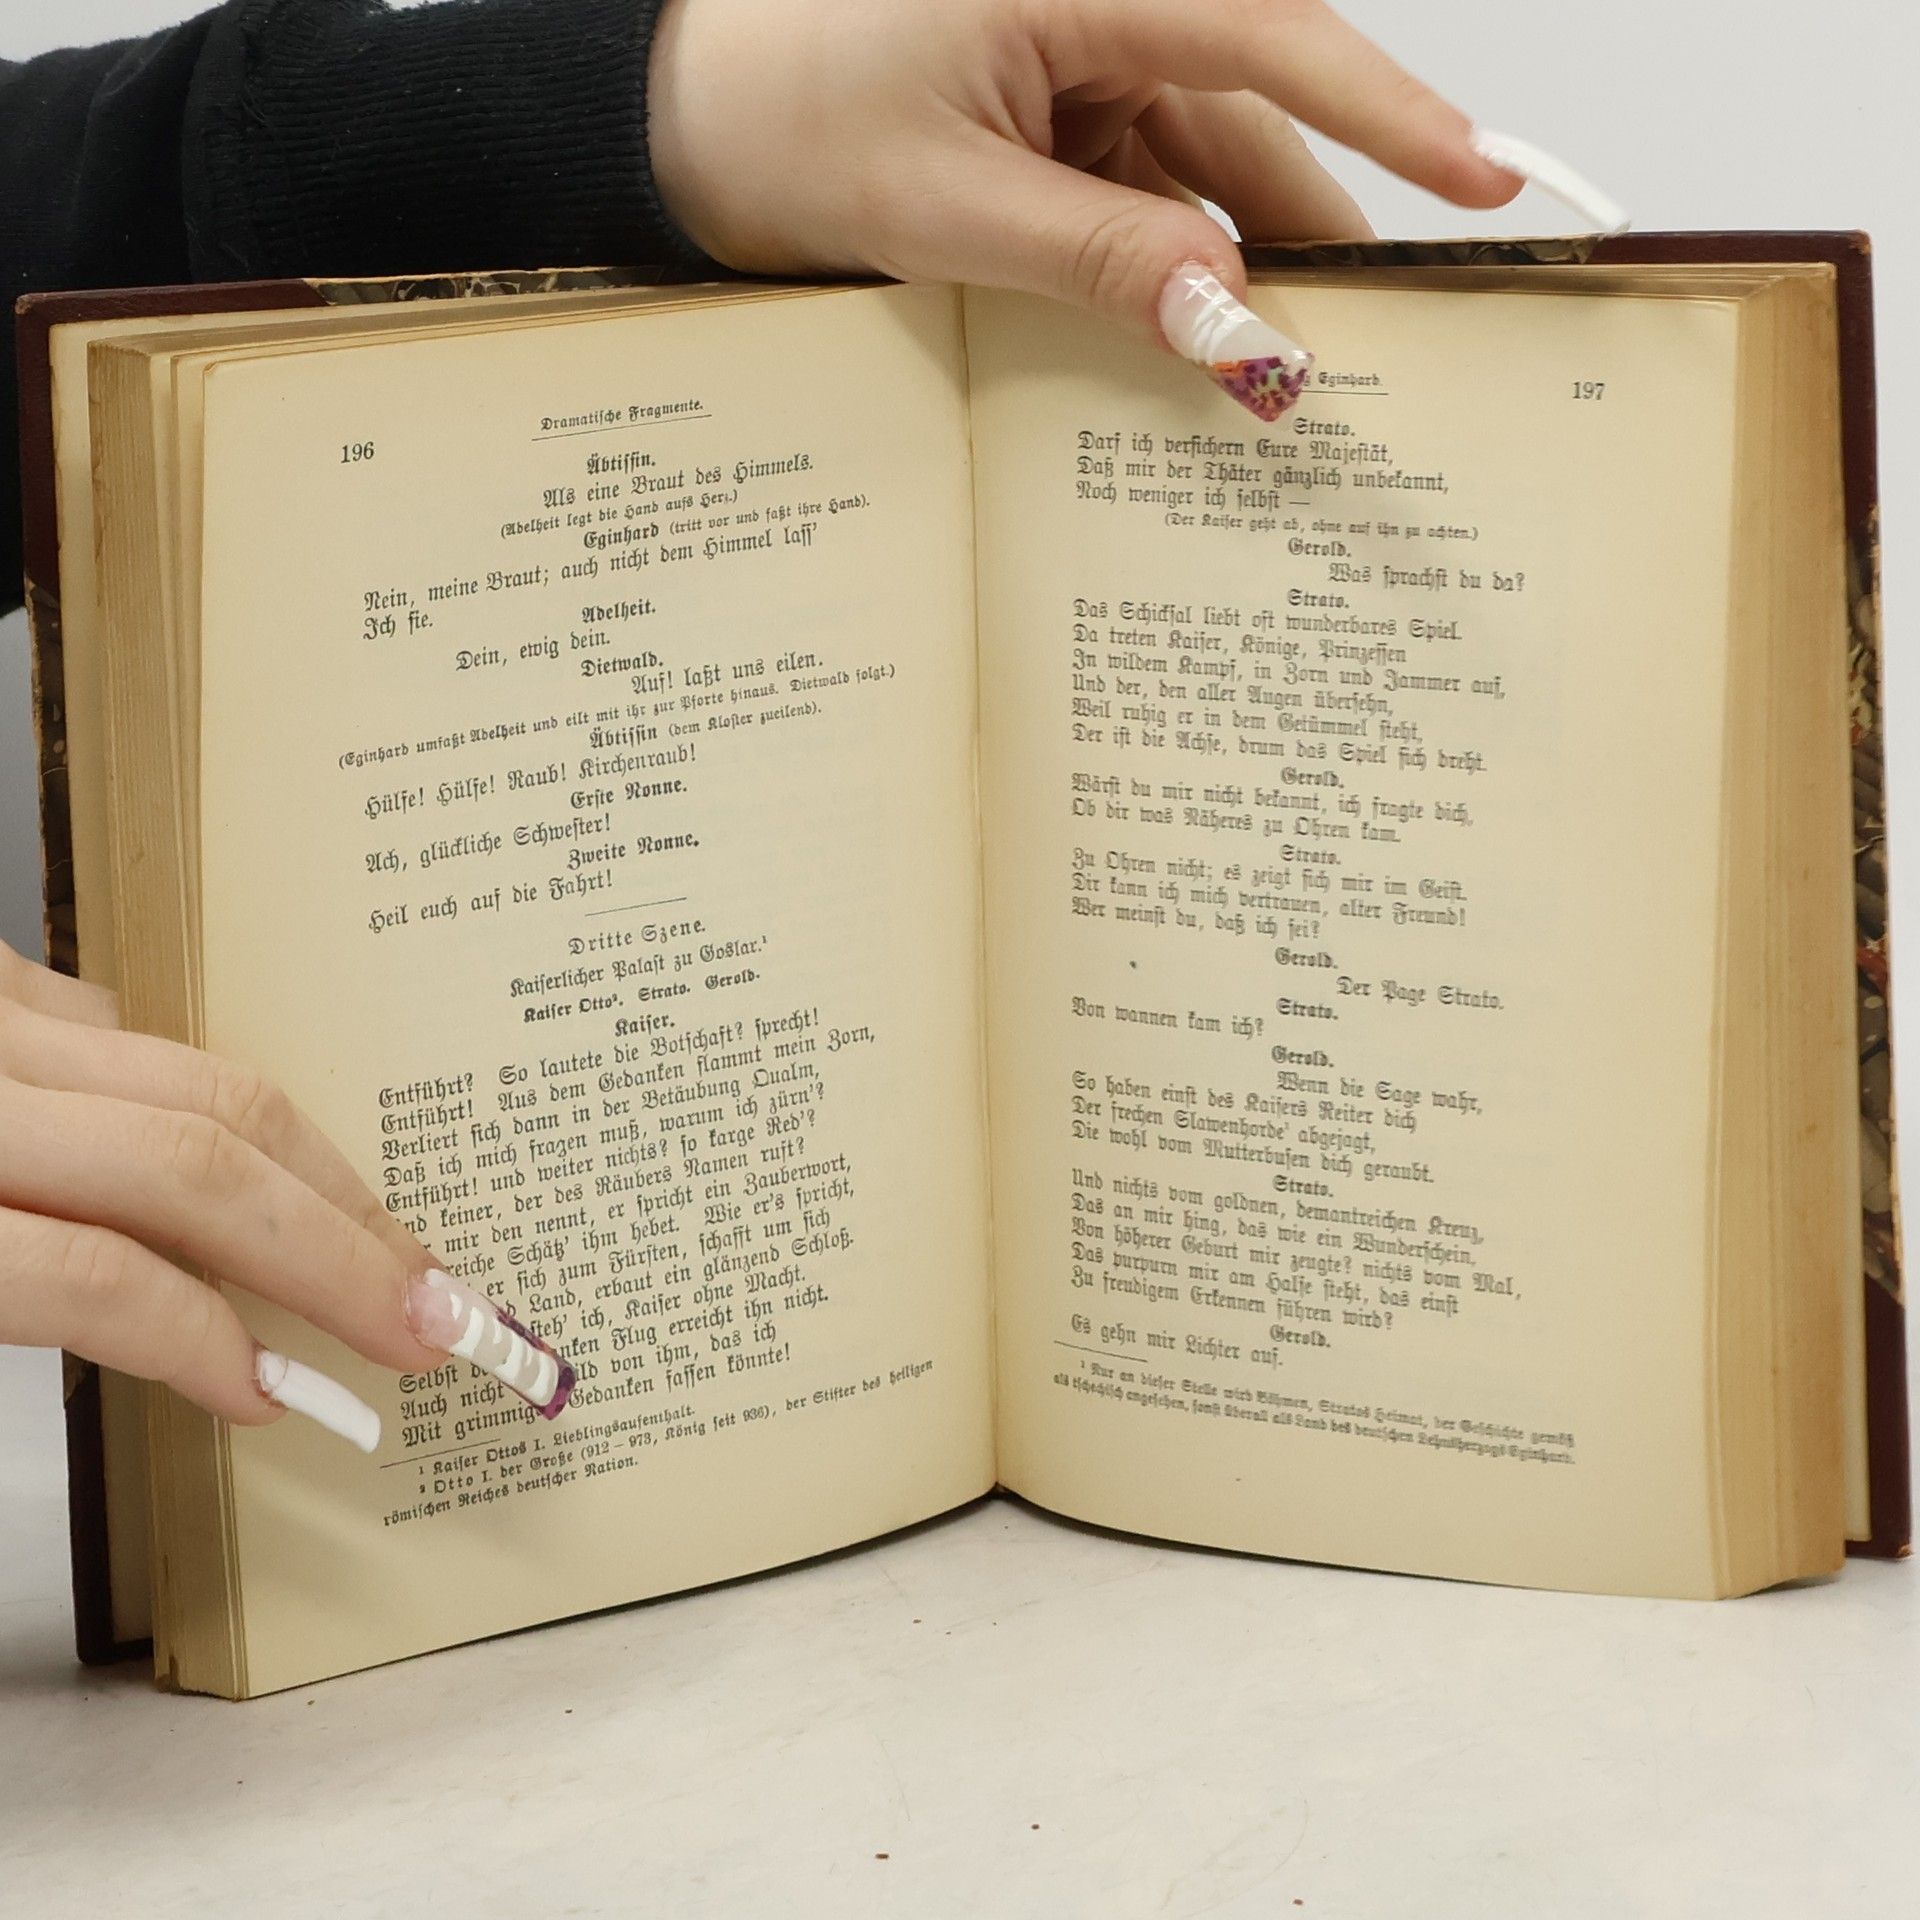 196
Dramatische Fragmente.
Äbtissin.
Als eine Braut des Himmels.
(Adelheit legt die Hand aufs Herz.)
Eginhard (tritt vor und faßt ihre Hand).
Nein, meine Braut; auch nicht dem Himmel lass'
Ich sie.
Adelheit.
Dein, ewig dein.
Dietwald.
Auf! laßt uns eilen.
(Eginhard umfaßt Adelheit und eilt mit ihr zur Pforte hinaus. Dietwald folgt.)
Äbtissin (dem Kloster zueilend).
Hülfe! Hülfe! Raub! Kirchenraub!
Erste Nonne.
Ach, glückliche Schwester!
Zweite Nonne.
Heil euch auf die Fahrt!
Dritte Szene.
Kaiserlicher Palast zu Goslar.¹
Kaiser Otto². Strato. Gerold.
Kaiser.
Entführt? So lautete die Botschaft? sprecht!
Entführt! Aus dem Gedanken flammt mein Zorn,
Verliert sich dann in der Betäubung Qualm,
Daß ich mich fragen muß, warum ich zürn'?
Entführt! und weiter nichts? so karge Red'?
Und keiner, der des Räubers Namen ruft?
mir den nennt, er spricht ein Zauberwort,
reiche Schätz' ihm hebet. Wie er's spricht,
er sich zum Fürsten, schafft um sich
Land, erbaut ein glänzend Schloß.
steh' ich, Kaiser ohne Macht.
Selbst Flug erreicht ihn nicht.
Auch nicht von ihm, das ich
Mit Gedanken fassen könnte!
¹ Kaiser Ottos I. Lieblingsaufenthalt.
² Otto I. der Große (912–973, König seit 936), der Stifter des heiligen
römischen Reiches deutscher Nation.
Eginhard.
197
Strato.
Darf ich versichern Eure Majestät,
Daß mir der Thäter gänzlich unbekannt,
Noch weniger ich selbst —
(Der Kaiser geht ab, ohne auf ihn zu achten.)
Gerold.
Was sprachst du da?
Strato.
Das Schicksal liebt oft wunderbares Spiel.
Da treten Kaiser, Könige, Prinzessen
In wildem Kampf, in Zorn und Jammer auf,
Und der, den aller Augen übersehn,
Weil ruhig er in dem Getümmel steht,
Der ist die Achse, drum das Spiel sich dreht.
Gerold.
Wärst du mir nicht bekannt, ich fragte dich,
Ob dir was Näheres zu Ohren kam.
Strato.
Zu Ohren nicht; es zeigt sich mir im Geist.
Dir kann ich mich vertrauen, alter Freund!
Wer meinst du, daß ich sei?
Gerold.
Der Page Strato.
Strato.
Von wannen kam ich?
Gerold.
Wenn die Sage wahr,
So haben einst des Kaisers Reiter dich
Der frechen Slawenhorde¹ abgejagt,
Die wohl vom Mutterbusen dich geraubt.
Strato.
Und nichts vom goldnen, demantreichen Kreuz,
Das an mir hing, das wie ein Wunderschein,
Von höherer Geburt mir zeugte? nichts vom Mal,
Das purpurn mir am Halse steht, das einst
Zu freudigem Erkennen führen wird?
Gerold.
Es gehn mir Lichter auf.
¹ Nur an dieser Stelle wird Böhmen, Stratos Heimat, der Geschichte gemäß
als tschechisch angesehen, sonst überall als Land des deutschen Lehnsherzogs Eginhard.